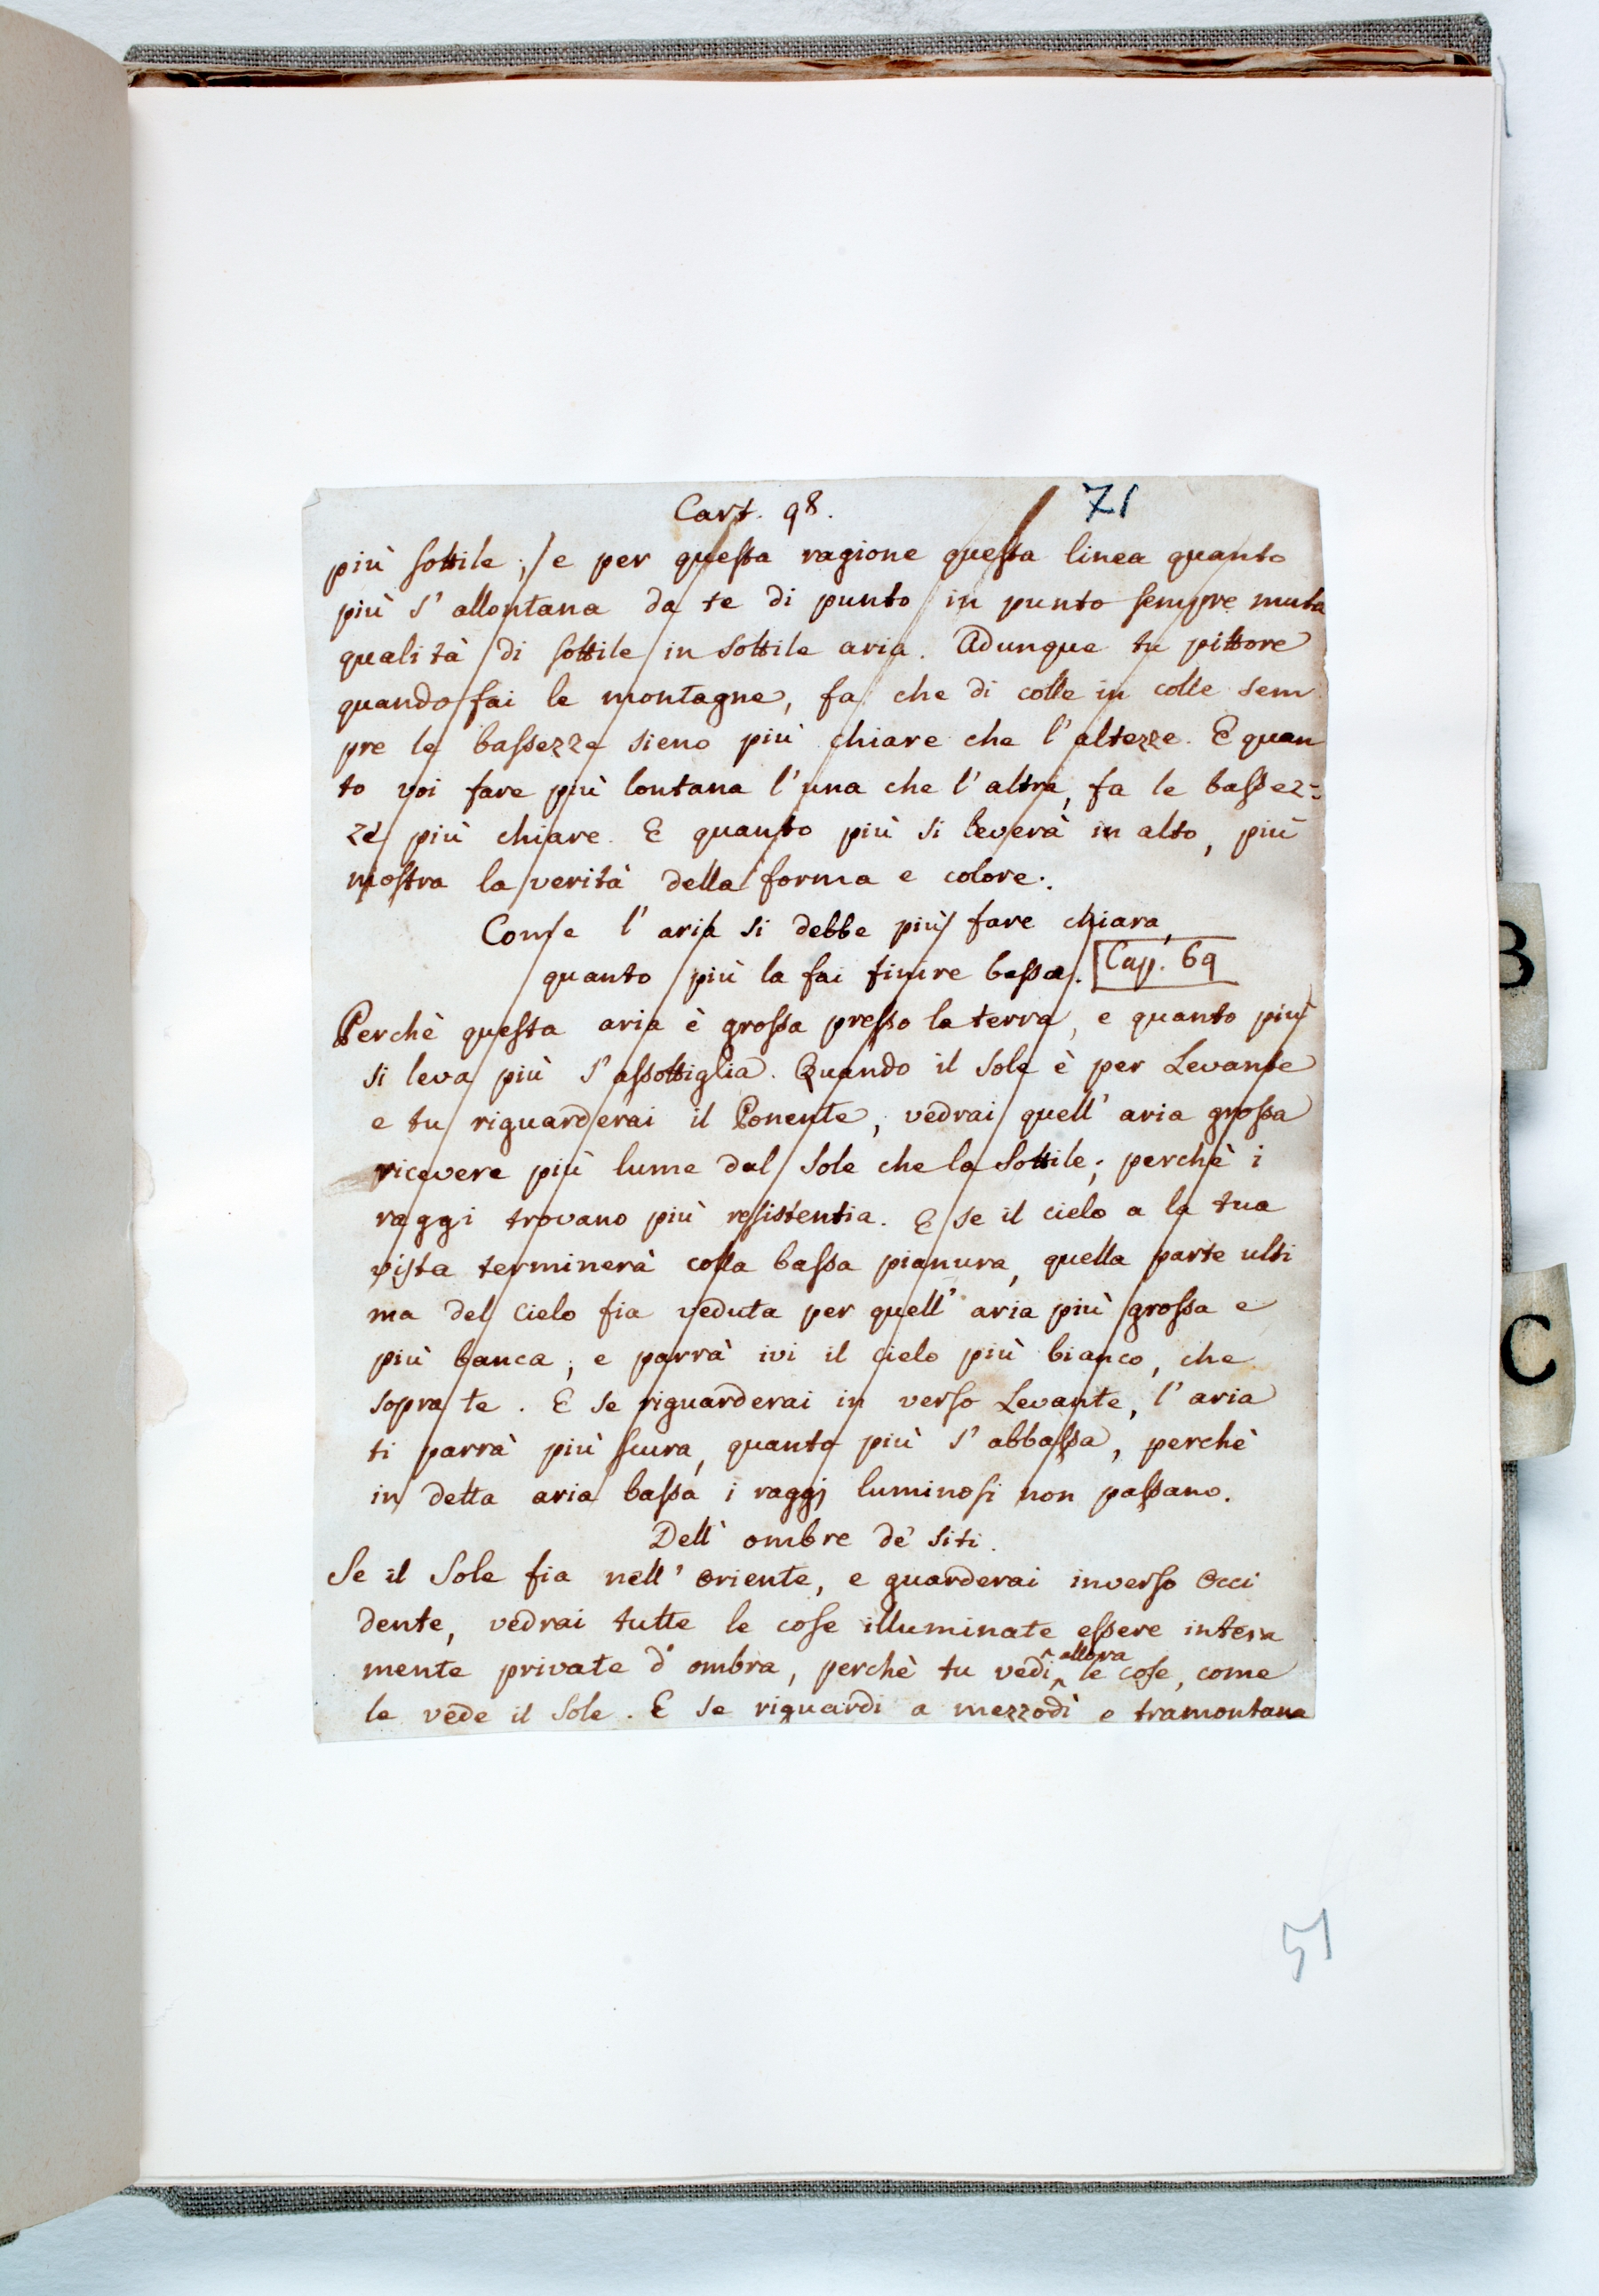 Cart. 98.
71
più sottile ; e per questa ragione questa linea quanto
più s' allontana da te di punto in punto sempre muta
qualità di sottile in sottile aria. Adunque tu pittore
quando fai le montagne, fa che di colle in colle sem
pre le bassezze sieno più chiare che l' altezze. E quan
to voi fare più lontana l' una che l' altra, fa le bassez=
ze più chiare. E quanto più si leverà in alto, più
mostra la verità della forma e colore.
Come l' aria si debbe più fare chiara,
quanto più la fai finire bassa. Cap. 69
Perchè questa aria è grossa presso la terra, e quanto più
si leva più s' assottiglia. Quando il sole è per Levante
e tu riguarderai il Ponente, vedrai quell' aria grossa
ricevere più lume dal Sole che la sottile; perchè i
raggi trovano più resistentia. E se il cielo a la tua
vista terminerà colla bassa pianura, quella parte ulti
ma del cielo fia veduta per quell' aria più grossa e
più banca; e parrà ivi il cielo più bianco, che
sopra te. E se riguarderai in verso Levante, l' aria
ti parrà più scura, quanto più s' abbassa, perchè
in detta aria bassa i raggj luminosi non passano.
Dell' ombre de' siti.
Se il Sole fia nell' oriente, e guarderai inverso Occi
dente, vedrai tutte le cose illuminate essere intera
mente private d' ombra, perchè tu vedi allora le cose, come
le vede il Sole. E se riguardi a mezzodì e tramontana
51
B
C